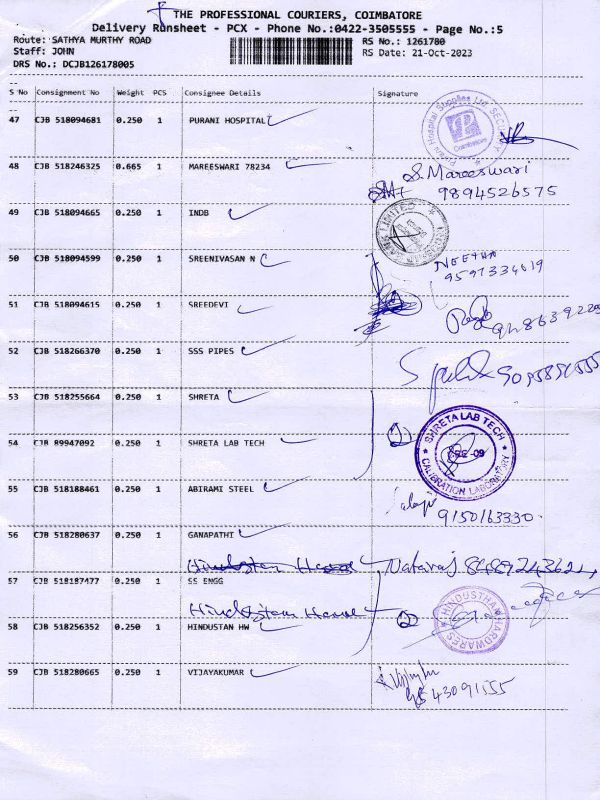 THE PROFESSIONAL COURIERS, COIMBATORE
Delivery Runsheet - PCX - Phone No.:0422-3505555 - Page No.:5
Route: SATHYA MURTHY ROAD RS No.: 1261780
Staff: JOHN RS Date: 21-Oct-2023
DRS No.: DCJB126178005
S No Consignment No Weight PCS Consignee Details Signature
47 CJB 518094681 0.250 1 PURANI HOSPITAL
Purani Hospital Supplies Coimbatore
48 CJB 518246325 0.665 1 MAREESWARI 78234 S. Mareeswari
9894526575
49 CJB 518094665 0.250 1 INDB
LIMITED
50 CJB 518094599 0.250 1 SREENIVASAN N NEETHA
9597334619
51 CJB 518094615 0.250 1 SREEDEVI
52 CJB 518266370 0.250 1 SSS PIPES
53 CJB 518255664 0.250 1 SHRETA
54 CJB 89947092 0.250 1 SHRETA LAB TECH 2
SHRETA LAB TECH
CALIBRATION LABORATORY
55 CJB 518188461 0.250 1 ABIRAMI STEEL
9150163330
56 CJB 518280637 0.250 1 GANAPATHI
Nataraj. 8489243621
57 CJB 518187477 0.250 1 SS ENGG
58 CJB 518256352 0.250 1 HINDUSTAN HW 2
HINDUSTHAN HARDWARES
59 CJB 518280665 0.250 1 VIJAYAKUMAR